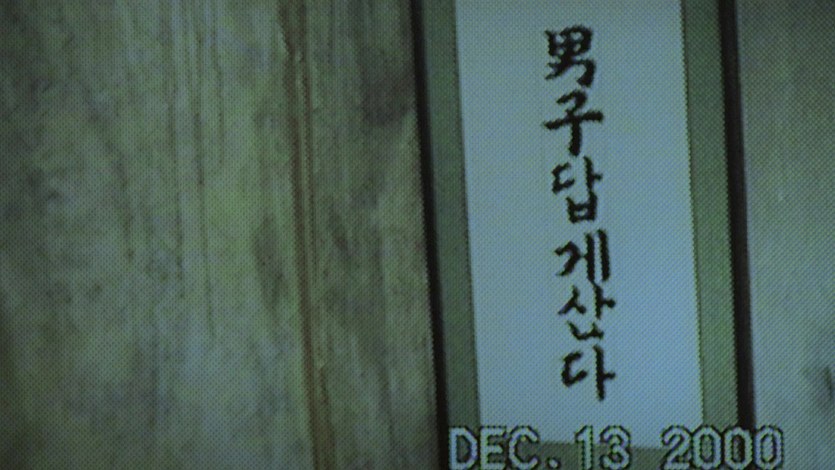 男子답게산다
DEC. 13 2000